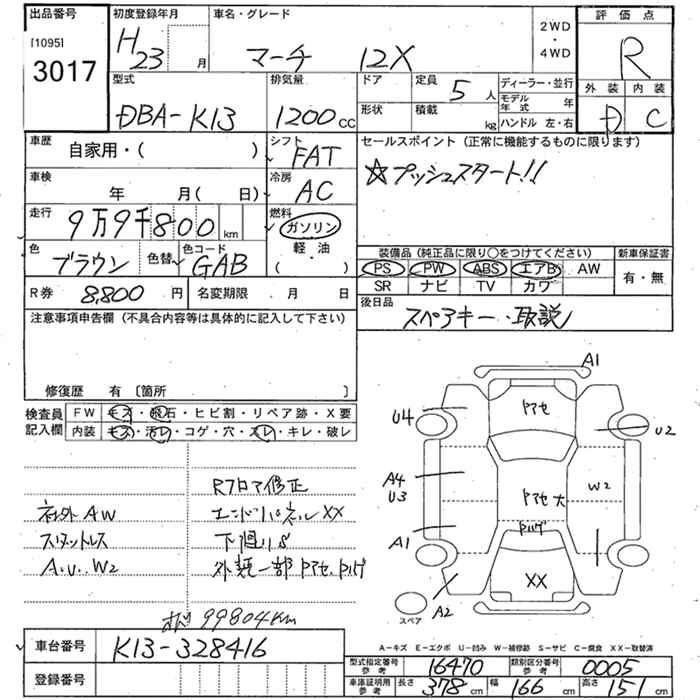 出品番号 初度登録年月 車名・グレード 2WD・4WD 評価点
[1095] 3017 H23 月 マーチ 12X R
型式 排気量 ドア 定員 5人 ディーラー・並行 外装 内装
DBA-K13 1200cc 形状 積載 kg モデル年式 年 ハンドル 左・右 D C
車歴 自家用・( ) シフト FAT セールスポイント(正常に機能するものに限ります)
車検 年 月( 日) 冷房 AC ☆プッシュスタート!!
走行 9万9千800km 燃料 ガソリン 軽・油 ( )
色 ブラウン 色替 色コード GAB 装備品(純正品に限り○をつけてください) 新車保証書
PS PW ABS エアB AW 有・無
R券 8,800円 名変期限 月 日 SR ナビ TV カワ
注意事項申告欄(不具合内容等は具体的に記入して下さい) 後日品 スペアキー・取説
修復歴 有 〔箇所 〕
検査員記入欄 FW キズ・飛石・ヒビ割・リペア跡・X要
内装 キズ・汚レ・コゲ・穴・スレ・キレ・破レ
Rフロア修正
社外AW エンドパネルXX
スタットレス 下廻りS
A.U..W2 外装一部Pアセ.Pハゲ
99804km
A1
Pアセ
U4 U2
A4 U3 Pアセ大 W2
A1 Pハゲ
XX
A2
スペア
A-キズ E-エクボ U-凹み W-補修跡 S-サビ C-腐食 XX-取替済
車台番号 K13-328416
型式指定番号 参考 16470 類別区分番号 参考 0005
登録番号 車庫証明用 参考 長さ 378cm 幅 166cm 高さ 151cm